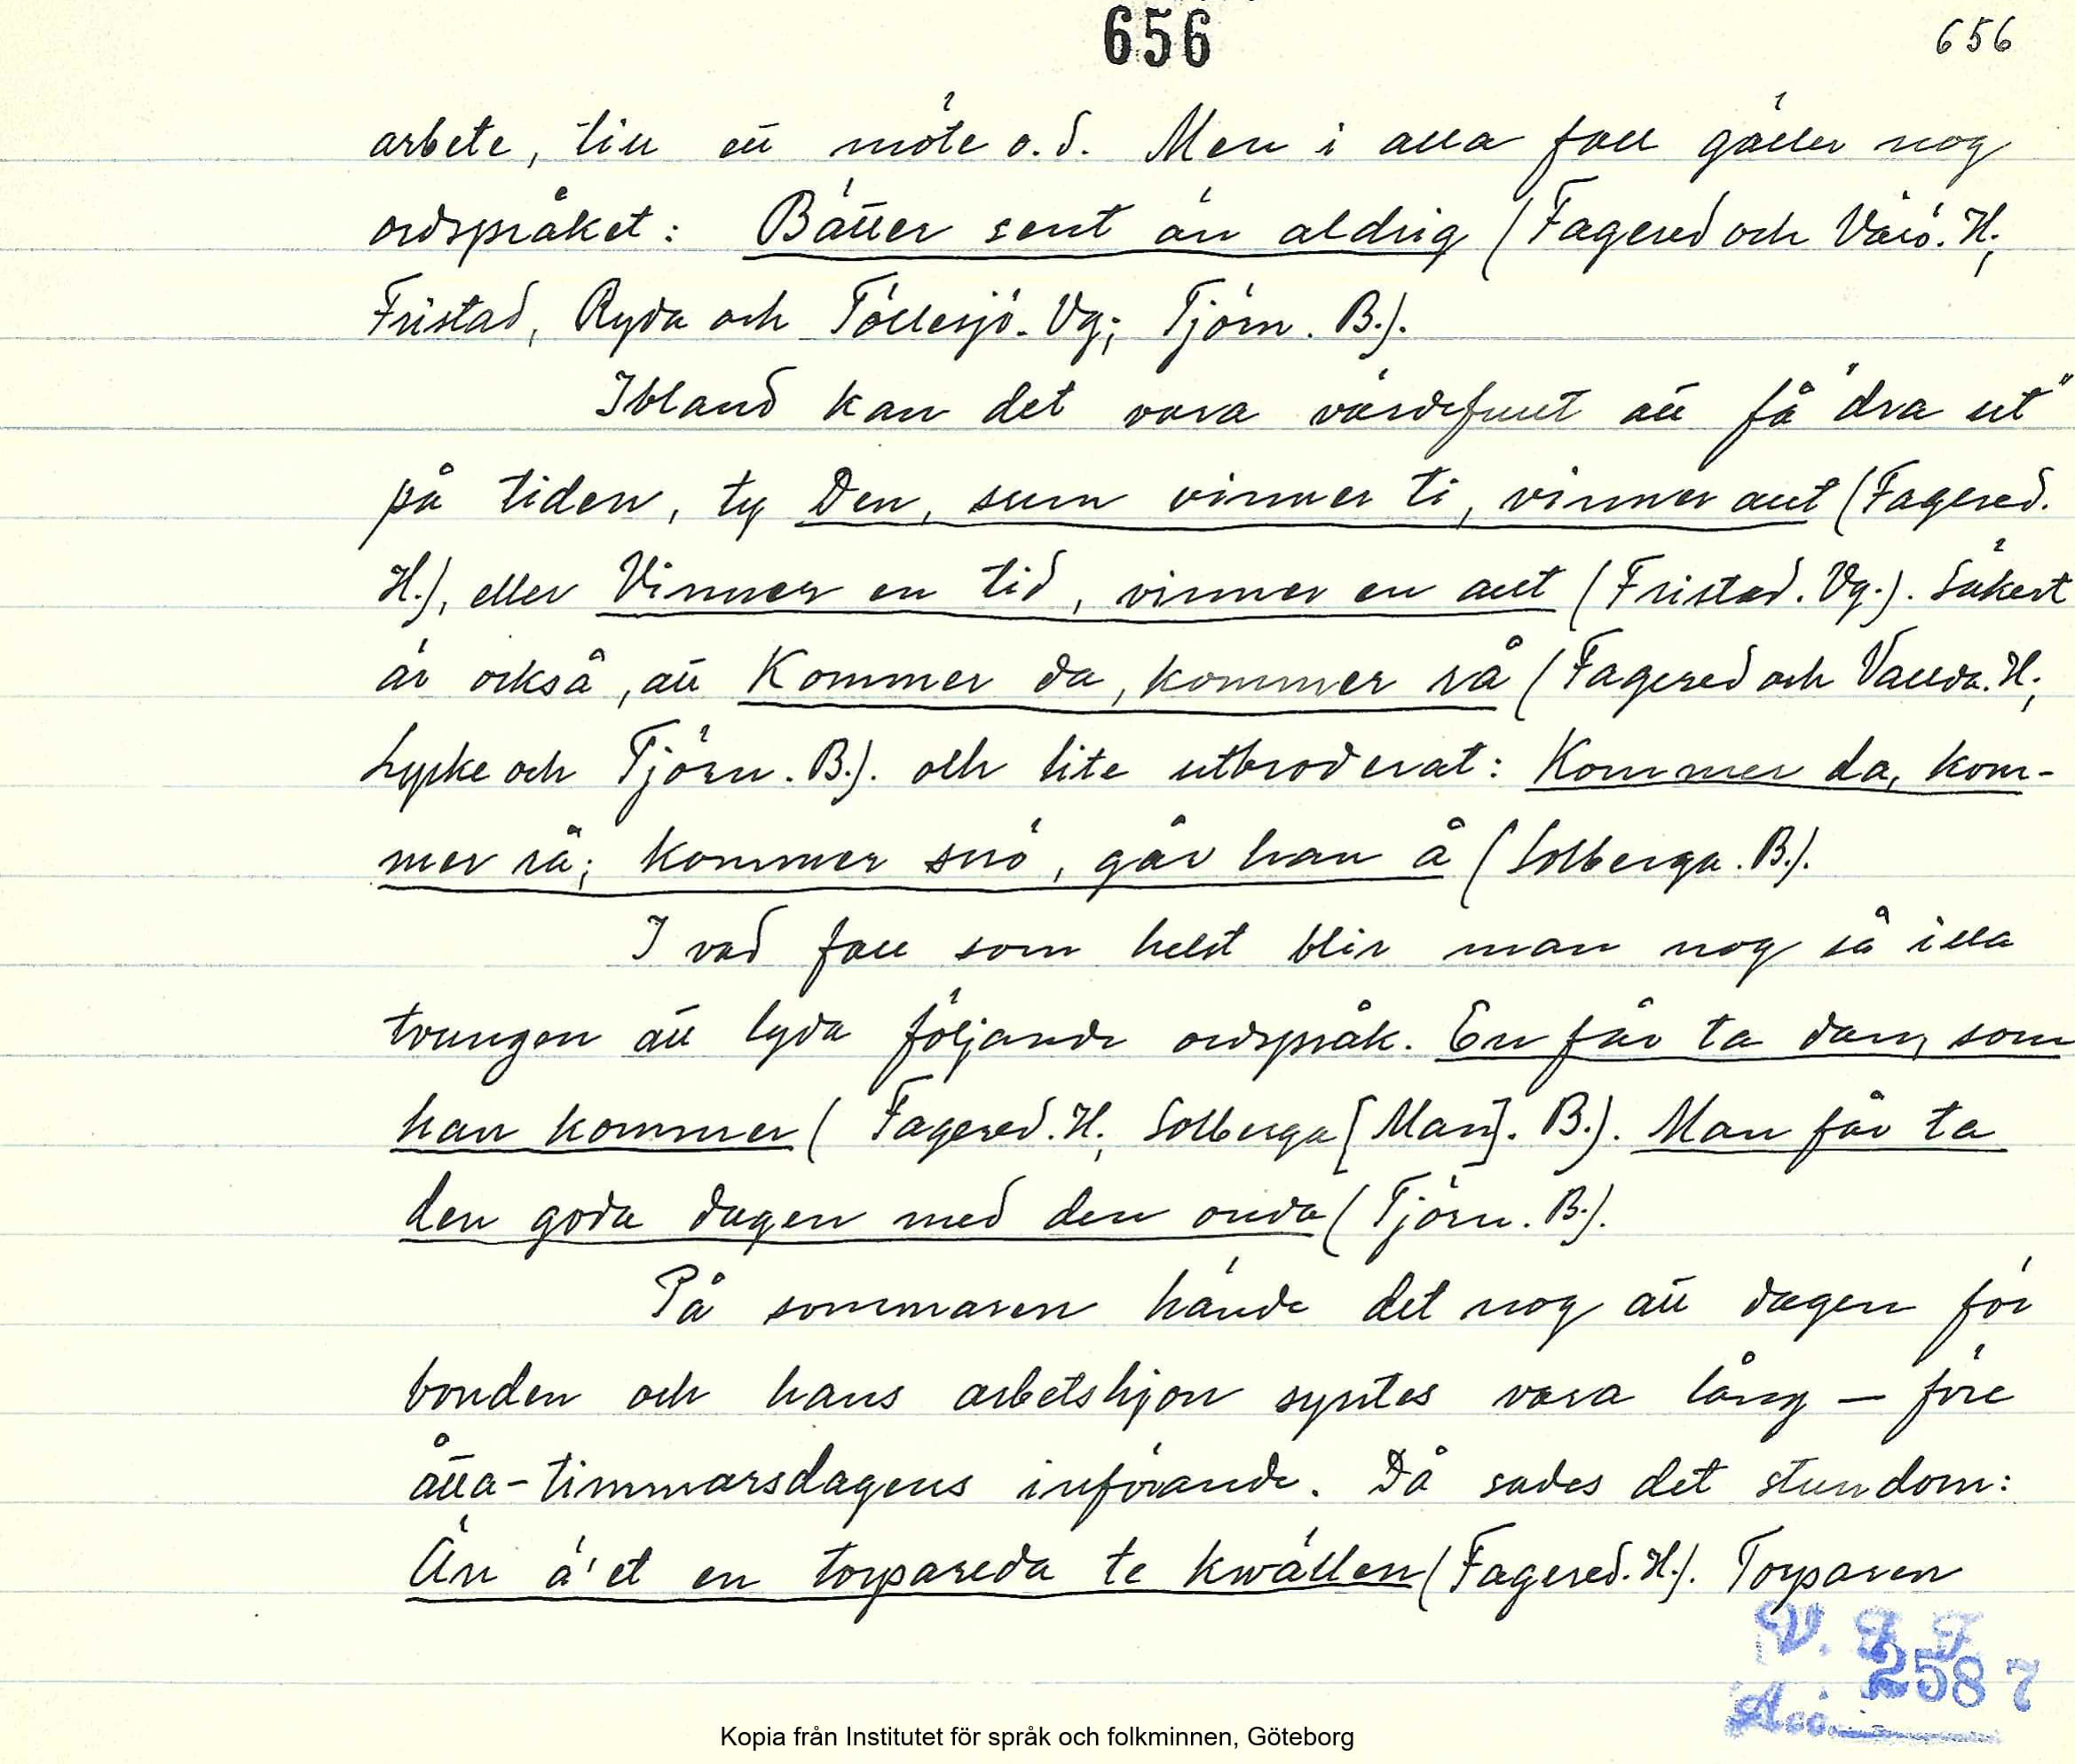 656
656
arbete, till ett möte o.d. Men i alla fall gäller nog
ordspråket: Bätter sent än aldrig (Fagered och Värö. H;
Fristad, Ryda och Töllesjö. Vg; Tjörn. B.).
Ibland kan det vara värdefullt att få "dra ut"
på tiden, ty Den, sum vinner ti, vinner allt (Fagered.
H.), eller Vinner en tid, vinner en allt (Fristad. Vg.). Säkert
är också, att Kommer da, kommer rå (Fagered och Vallda. H;
Lycke och Tjörn. B.). och lite utbroderat: Kommer da, kom-
mer rå; kommer snö, går han å (Solberga. B.).
I vad fall som helst blir man nog så illa
tvungen att lyda följande ordspråk. En får ta dan, som
han kommer (Fagered. H; Solberga [Man]. B.). Man får ta
den goda dagen med den onda (Tjörn. B.).
På sommaren hände det nog att dagen för
bonden och hans arbetshjon syntes vara lång — före
åtta-timmarsdagens införande. Då sades det stundom:
Än ä'et en torpareda te kwällen (Fagered. H.). Torparen
V. F. F.
Acc. 2587
Kopia från Institutet för språk och folkminnen, Göteborg